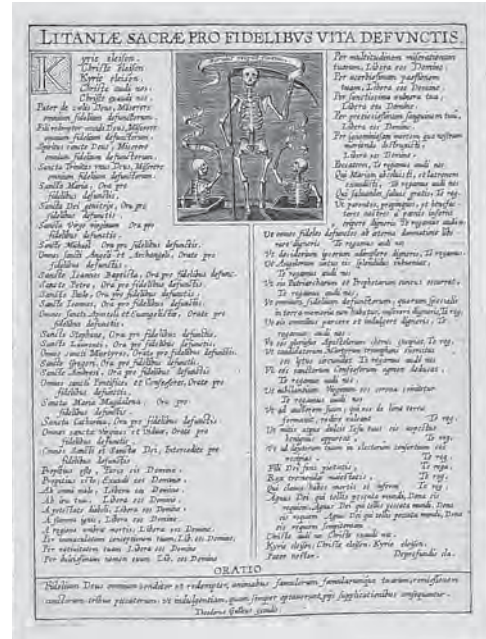 LITANIÆ SACRÆ PRO FIDELIBVS VITA DEFVNCTIS
Kyrie eleison.
Christe eleison
Kyrie eleison.
Christe audi nos.
Christe exaudi nos.
Pater de celis Deus, Miserere
omnium fidelium defunctorum.
Fili redemptor mundi Deus, Miserere
omnium fidelium defunctorum.
Spiritus sancte Deus, Miserere
omnium fidelium defunctorum.
Sancta Trinitas unus Deus, Miserere
omnium fidelium defunctorum.
Sancta Maria, Ora pro
fidelibus defunctis.
Sancta Dei genitrix, Ora pro
fidelibus defunctis.
Sancta Virgo virginum Ora pro
fidelibus defunctis.
Sancte Michael Ora pro fidelibus defunctis.
Omnes sancti Angeli et Archangeli, Orate pro
fidelibus defunctis.
Sancte Ioannes Baptista, Ora pro fidelibus defunc.
Sancte Petre, Ora pro fidelibus defunctis.
Sancte Paule, Ora pro fidelibus defunctis.
Sancte Ioannes, Ora pro fidelibus defunctis.
Omnes sancti Apostoli et Euangelistæ, Orate pro
fidelibus defunctis.
Sancte Stephane, Ora pro fidelibus defunctis.
Sancte Laurenti, Ora pro fidelibus defunctis.
Omnes sancti Martyres, Orate pro fidelibus defunctis.
Sancte Gregori, Ora pro fidelibus defunctis.
Sancte Ambrosi, Ora pro fidelibus defunctis.
Omnes sancti Pontifices et Confessores, Orate pro
fidelibus defunctis.
Sancta Maria Magdalena, Ora pro
fidelibus defunctis.
Sancta Catharina, Ora pro fidelibus defunctis.
Omnes sanctæ Virgines et Viduæ, Orate pro
fidelibus defunctis.
Omnes Sancti et Sanctæ Dei, Intercedite pro
fidelibus defunctis
Propitius esto, Parce eis Domine.
Propitius esto, Exaudi eos Domine.
Ab omni malo, Libera eos Domine.
Ab ira tua, Libera eos Domine.
A potestate diaboli, Libera eos Domine.
A flammis ignis, Libera eos Domine.
A regione umbræ mortis, Libera eos Domine.
Per immaculatam conceptionem tuam, Lib. eos Domine.
Per nativitatem tuam Libera eos Domine
Per nomen tuum Lib. eos Domine
Per multitudinem miserationum
tuarum, Libera eos Domine.
Per acerbissimam passionem
tuam, Libera eos Domine.
Per sanctissima vulnera tua,
Libera eos Domine.
Per pretiosissimum sanguinem tuum,
Libera eos Domine.
Per ignominiosam mortem qua nostram
moriendo destruxisti,
Libera eos Domine.
Peccatores, Te rogamus audi nos
Qui Mariam absoluisti, et latronem
exaudisti, Te rogamus audi nos
Qui saluandos saluas gratis Te rog.
Ut parentes, propinquos, et benefac
tores nostros a pœnis inferni
eripere digneris Te rogamus audi n.
Ut omnes fideles defunctos ab æterna damnatione libe
rare digneris Te rogamus audi nos
Ut desiderium ipsorum adimplere digneris, Te rogamus.
Ut Angelorum cœtus eis splendidus
Te rogamus audi nos.
Ut eis Patriarcharum et Prophetarum cuneus occurrat,
Te rogamus audi nos.
Ut omnium fidelium defunctorum, quorum specialis
in terra memoria non habetur, misereri digneris, Te rog.
Ut eis omnibus parcere et indulgere digneris, Te
rogamus audi nos.
Ut eos gloriosus Apostolorum chorus suscipiat, Te rog.
Ut candidatorum Martyrum triumphans exercitus
eos lætus circumdet Te rogamus audi nos
Ut eos sanctorum Confessorum agmen deducat,
Te rogamus audi nos.
Ut iubilantium Virginum eos corona comitetur
Te rogamus audi nos.
Ut ad auctorem suum, qui eos de limo terræ
formauit, redire valeant Te rog.
Ut mitis atque dulcis Iesu tuus eis aspectus
benignus appareat, Te rog.
Ut ad dexteram tuam in electorum consortium eos
recipias. Te rog.
Fili Dei fons pietatis, Te roga.
Rex tremendæ maiestatis, Te rog.
Qui claues habes mortis et inferni, Te rog.
Agnus Dei qui tollis peccata mundi, Dona eis
requiem, Agnus Dei qui tollis peccata mundi, Dona
eis requiem Agnus Dei qui tollis peccata mundi, Dona
eis requiem sempiternam.
Christe audi nos Christe exaudi nos
Kyrie eleison, Christe eleison, Kyrie eleison,
Pater noster. Deprofundis cla.
ORATIO
Fidelium Deus omnium conditor et redemptor, animabus famulorum famularumque tuarum, remissionem
cunctorum tribue peccatorum: ut indulgentiam, quam semper optauerunt, pijs supplicationibus consequantur.
Theodorus Galleus excudit